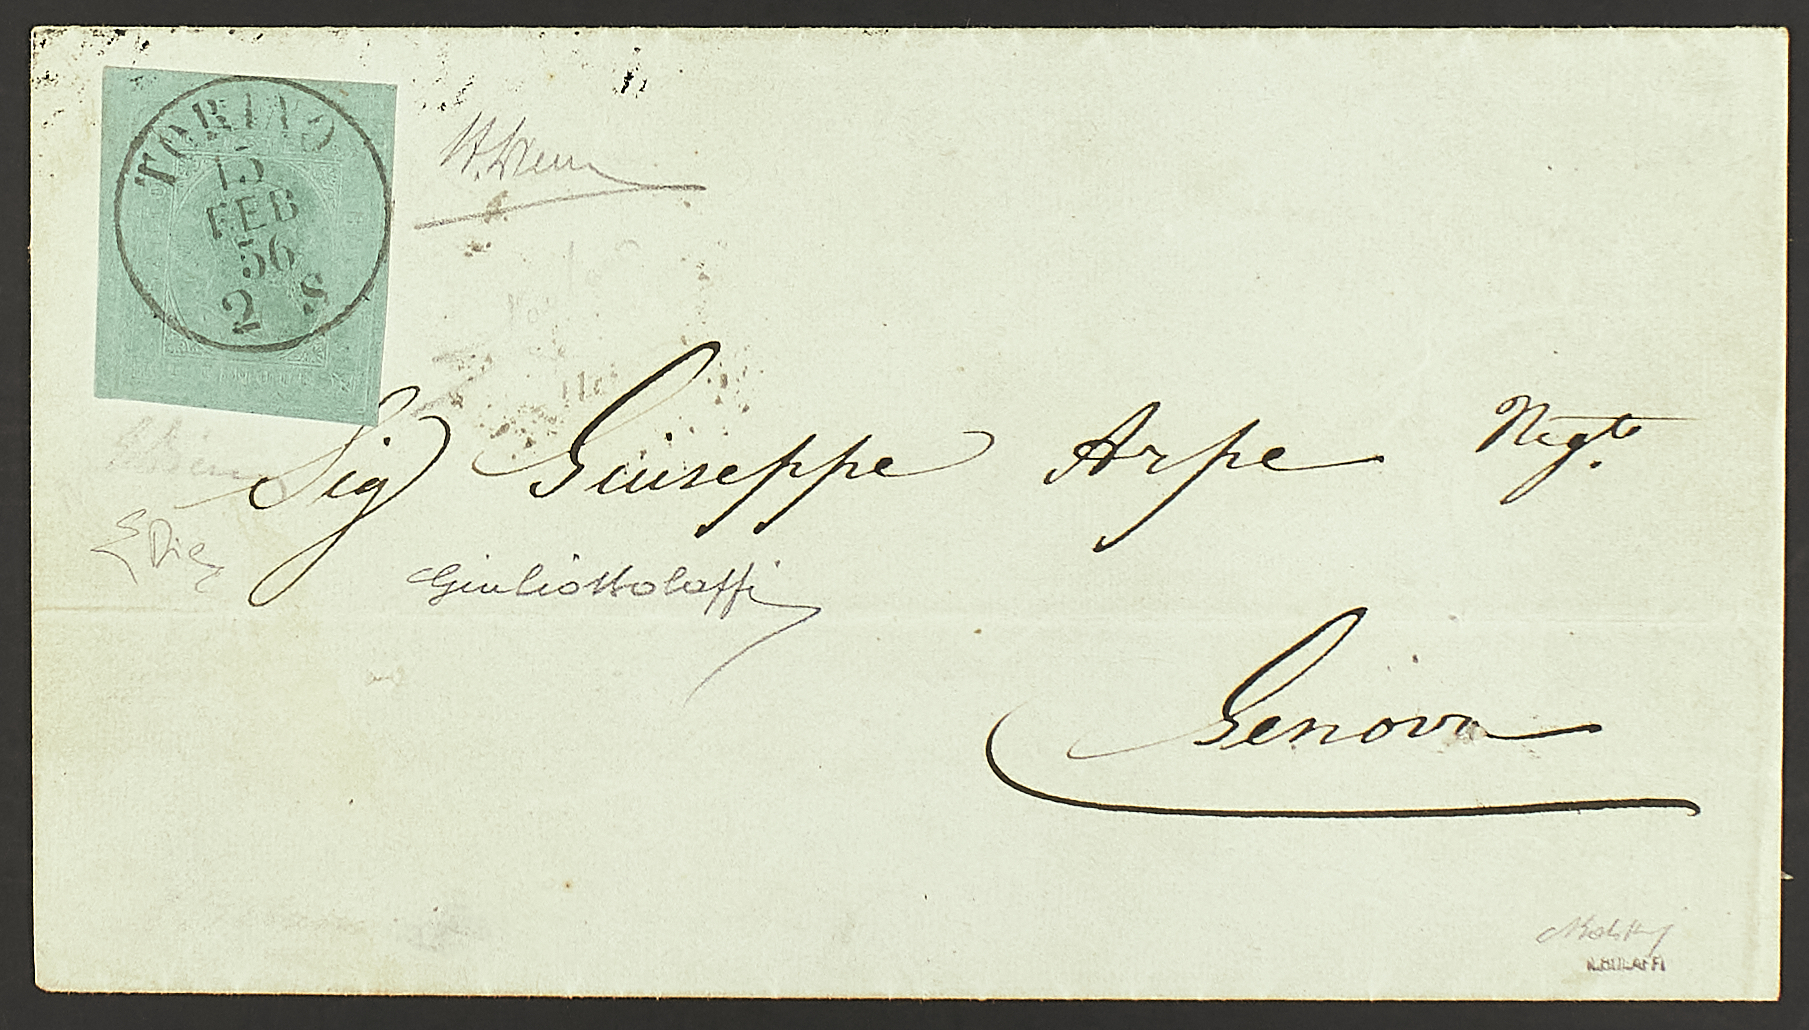 TORINO
15
FEB
56
2 S
Sig Giuseppe Arpe Negte
EDiena
Giulio Bolaffi
Genova
A. BOLAFFI